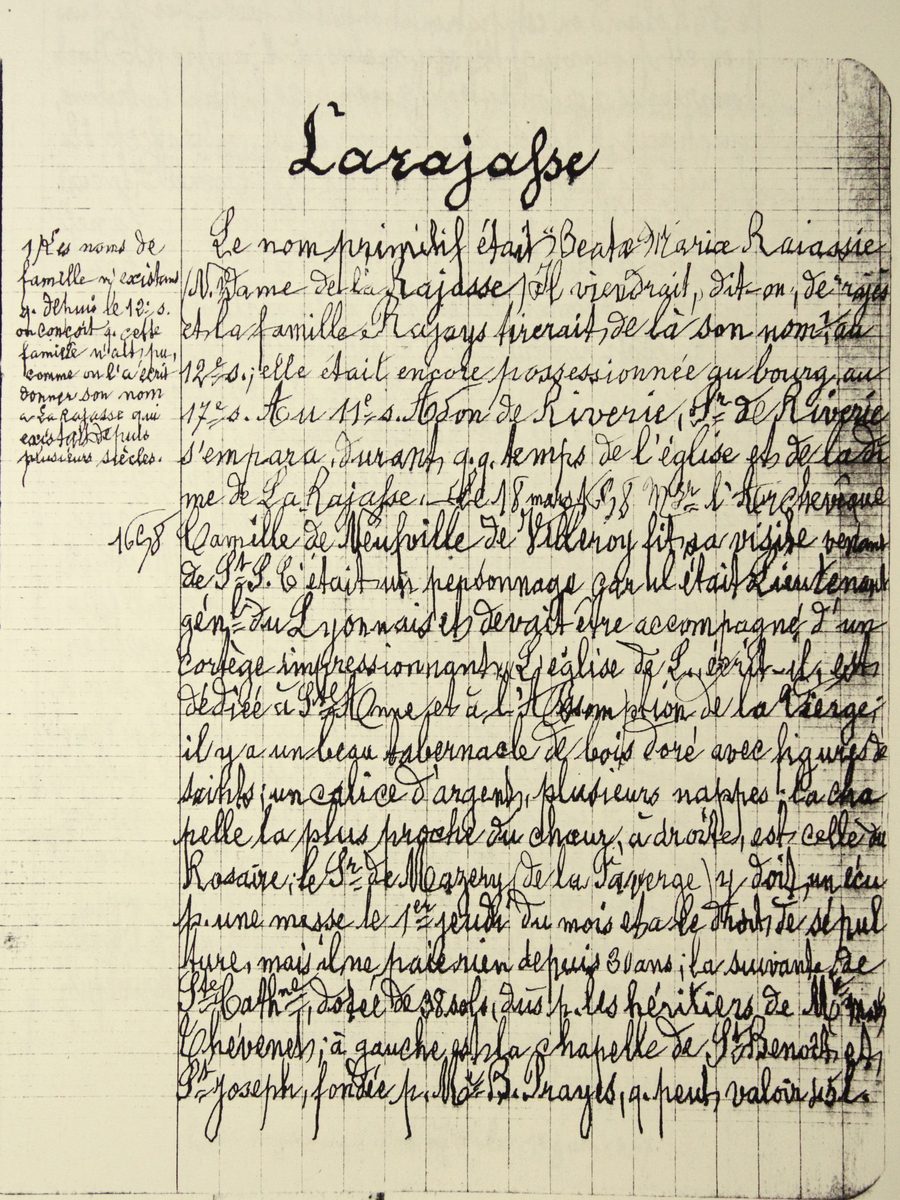 Larajasse
Le nom primitif était "Beatæ Mariæ Raiassie
(N. Dame de la Rajasse) Il viendrait, dit-on, de rajes
et la famille Rajays tirerait de là son nom, au
12e s.; elle était encore possessionnée au bourg au
17e s. Au 11e s. Adon de Riverie, Sr de Riverie
s'empara, durant q.q. temps de l'église et de la dî
me de La Rajasse. Le 18 mars 1658 Mgr l'Archevêque
Camille de Neufville de Villeroy fit sa visite venant
de St S. C'était un personnage car il était Lieutenant
génl du Lyonnais et devait être accompagné d'un
cortège impressionnant. L'église de L., écrit-il, est
dédiée à Ste Anne et à l'Assomption de la Vierge;
il y a un beau tabernacle de bois doré avec figures de
saints; un calice d'argent, plusieurs nappes. la cha
pelle la plus proche du chœur, à droite, est celle du
Rosaire; le Sr de Mazery (de la Faverge) y doit un écu
p. une messe le 1er jeudi du mois et a le droit de sépul
ture, mais il ne paie rien depuis 30 ans; la suivante de
Ste Cathne, dotée de 38 sols, dus p. les héritiers de
Thévenet; à gauche, est la chapelle de St Benoît et
St Joseph, fondée p. B. Prayes, q. peut valoir 45 l.
1) Les noms de
famille n'existent
q. depuis le 12e s.
on conçoit q. cette
famille n'ait pu,
comme on l'a écrit
donner son nom
a La Rajasse qui
existait depuis
plusieurs siècles.
1658